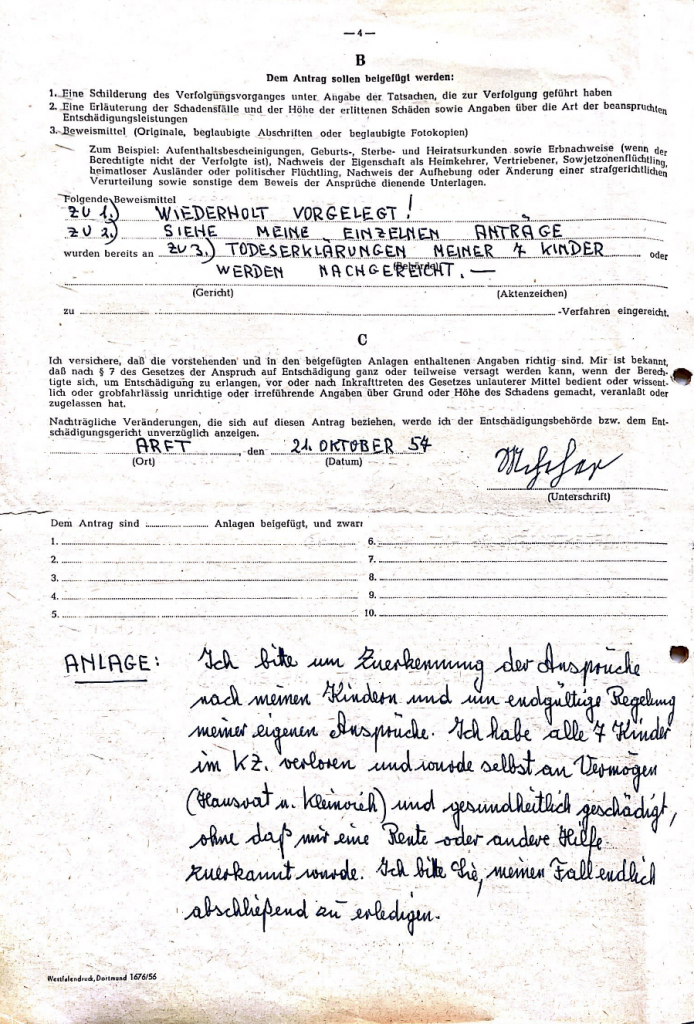 — 4 —
B
Dem Antrag sollen beigefügt werden:
1. Eine Schilderung des Verfolgungsvorganges unter Angabe der Tatsachen, die zur Verfolgung geführt haben
2. Eine Erläuterung der Schadensfälle und der Höhe der erlittenen Schäden sowie Angaben über die Art der beanspruchten
Entschädigungsleistungen
3. Beweismittel (Originale, beglaubigte Abschriften oder beglaubigte Fotokopien)
Zum Beispiel: Aufenthaltsbescheinigungen, Geburts-, Sterbe- und Heiratsurkunden sowie Erbnachweise (wenn der
Berechtigte nicht der Verfolgte ist), Nachweis der Eigenschaft als Heimkehrer, Vertriebener, Sowjetzonenflüchtling,
heimatloser Ausländer oder politischer Flüchtling, Nachweis der Aufhebung oder Änderung einer strafgerichtlichen
Verurteilung sowie sonstige dem Beweis der Ansprüche dienende Unterlagen.
Folgende Beweismittel
ZU 1.) WIEDERHOLT VORGELEGT!
ZU 2.) SIEHE MEINE EINZELNEN ANTRÄGE
wurden bereits an ZU 3.) TODESERKLÄRUNGEN MEINER 7 KINDER oder
(Behörde)
WERDEN NACHGEREICHT. —
(Gericht) (Aktenzeichen)
zu -Verfahren eingereicht.
C
Ich versichere, daß die vorstehenden und in den beigefügten Anlagen enthaltenen Angaben richtig sind. Mir ist bekannt,
daß nach § 7 des Gesetzes der Anspruch auf Entschädigung ganz oder teilweise versagt werden kann, wenn der Berech-
tigte sich, um Entschädigung zu erlangen, vor oder nach Inkrafttreten des Gesetzes unlauterer Mittel bedient oder wissent-
lich oder grobfahrlässig unrichtige oder irreführende Angaben über Grund oder Höhe des Schadens gemacht, veranlaßt oder
zugelassen hat.
Nachträgliche Veränderungen, die sich auf diesen Antrag beziehen, werde ich der Entschädigungsbehörde bzw. dem Ent-
schädigungsgericht unverzüglich anzeigen.
ARFT, den 21. OKTOBER 57
(Ort) (Datum)
(Unterschrift)
Dem Antrag sind Anlagen beigefügt, und zwar
1. 6.
2. 7.
3. 8.
4. 9.
5. 10.
ANLAGE: Ich bitte um Zuerkennung der Ansprüche
nach meinen Kindern und um endgültige Regelung
meiner eigenen Ansprüche. Ich habe alle 7 Kinder
im KZ. verloren und wurde selbst an Vermögen
(Hausrat u. Kleinvieh) und gesundheitlich geschädigt,
ohne daß mir eine Rente oder andere Hilfe
zuerkannt wurde. Ich bitte Sie, meinen Fall endlich
abschließend zu erledigen.
Westfalendruck, Dortmund 1676/56